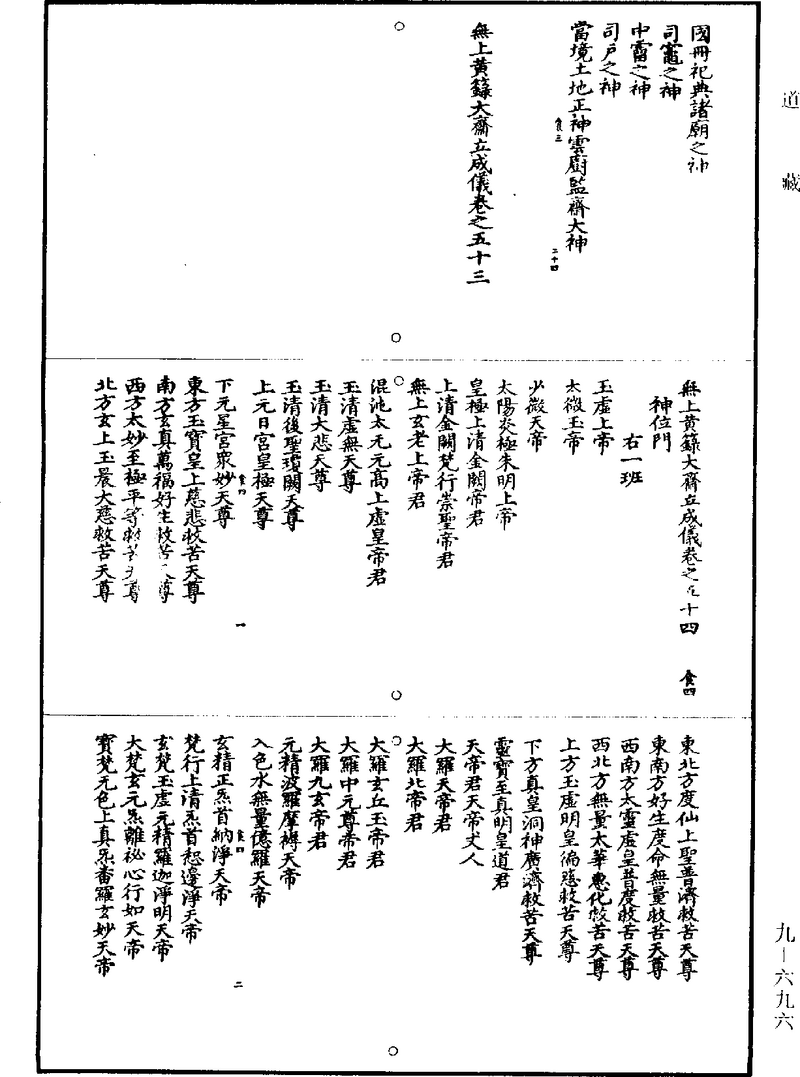 道藏
國冊祀典諸廟之神
司竈之神
中霤之神
司戶之神
當境土地正神雲廚監齋大神
食三
二十四
無上黃籙大齋立成儀卷之五十三
無上黃籙大齋立成儀卷之五十四
食四
神位門
右一班
玉虛上帝
太微玉帝
少微天帝
太陽炎極朱明上帝
皇極上清金闕帝君
上清金闕梵行崇聖帝君
無上玄老上帝君
混沌太元元高上虛皇帝君
玉清虛無天尊
玉清大悲天尊
玉清後聖瓊闕天尊
上元日宮皇極天尊
食四
一
下元星宮衆妙天尊
東方玉寶皇上慈悲救苦天尊
南方玄真萬福好生救苦天尊
西方太妙至極平等救苦天尊
北方玄上玉晨大慈救苦天尊
東北方度仙上聖普濟救苦天尊
東南方好生度命無量救苦天尊
西南方太靈虛皇普度救苦天尊
西北方無量太華惠化救苦天尊
上方玉虛明皇徧慈救苦天尊
下方真皇洞神廣濟救苦天尊
靈寶至真明皇道君
天帝君天帝丈人
大羅天帝君
大羅北帝君
大羅玄丘玉帝君
大羅中元尊帝君
大羅九玄帝君
元精波羅摩褥天帝
入色水無量億羅天帝
食四
二
玄精正炁首納淨天帝
梵行上清炁首愁邊淨天帝
玄梵玉虛元精羅迦淨明天帝
大梵玄元炁離祕心行如天帝
寶梵元色上真炁番羅玄妙天帝
九—六九六